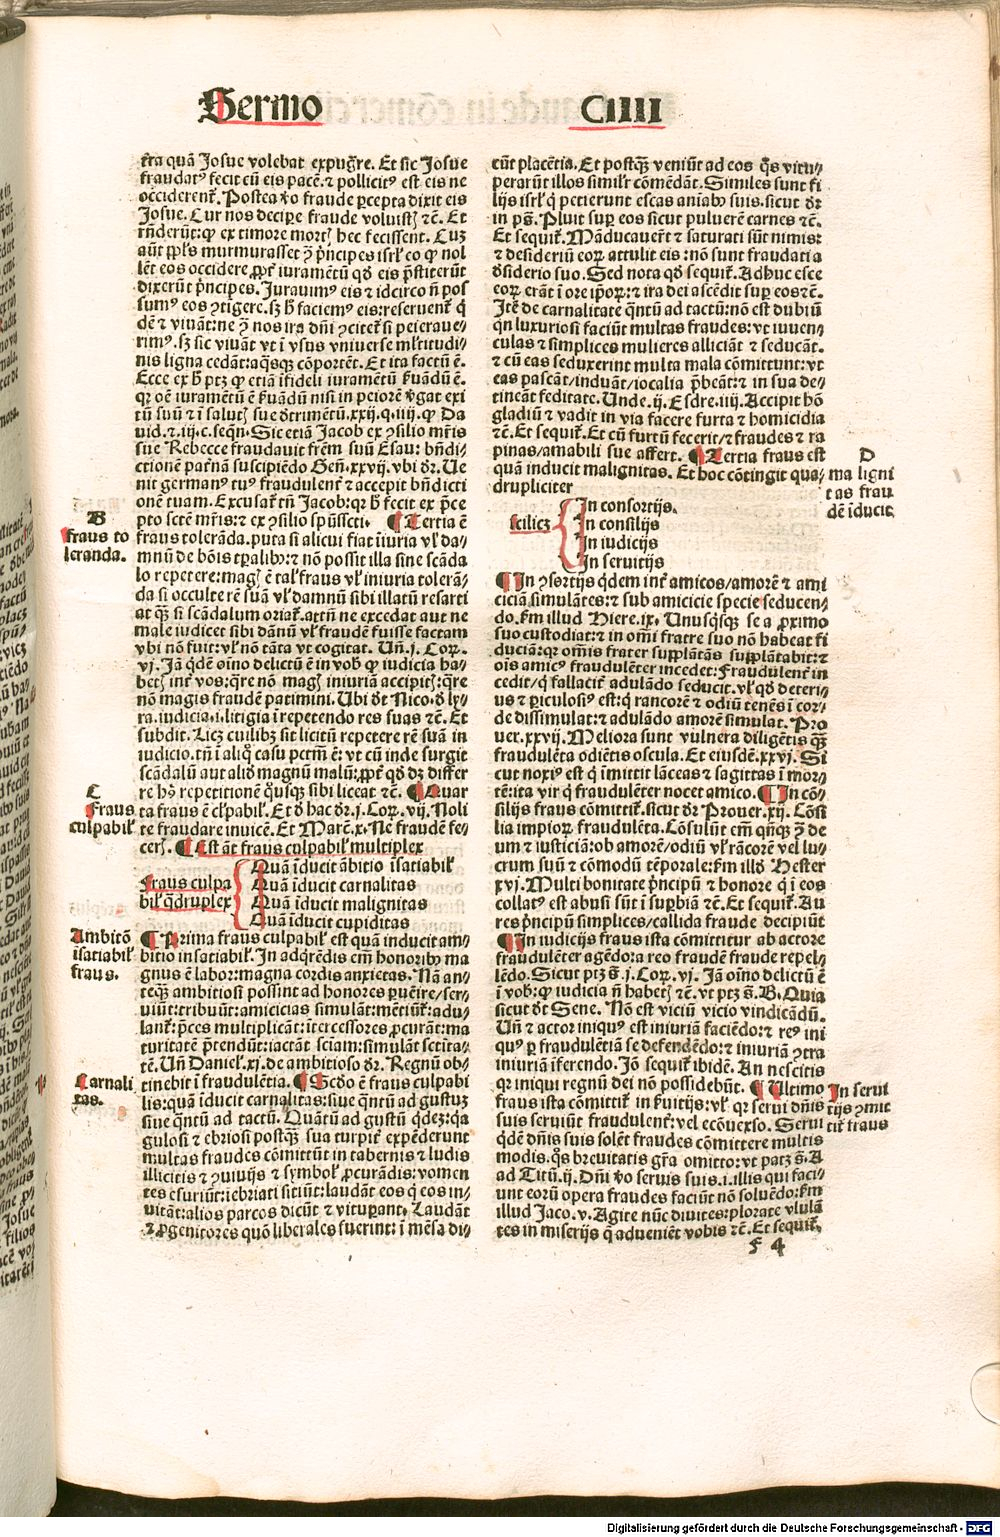 Sermo CIIII
t̄ra quā Josue volebat expug̃re. Et sic Josue
fraudatꝰ fecit cū eis pacē. ⁊ pollicitꝰ est eis ne
occiderent̃. Postea ꝟo fraude p̱cepta dixit eis
Josue. Cur nos decipe fraude voluistꝭ ⁊c. Et
rñderūt: ꝙ ex timore mortꝭ hec fecissent. Cuꝫ
aūt ppl̄s murmurasset ꝯ̃ p̄ncipes isrl̄ eo ꝙ nol
lēt eos occidere ꝓpt̃ iuramētū qḋ eis p̄stiterūt
dixerūt p̄ncipes. Jurauimꝰ eis ⁊ idcirco ñ pos
sumꝰ eos ꝯtigere. sꝫ h̄ faciemꝰ eis: reseruent̃ q̄
dē ⁊ viuāt: ne ꝯ̃ nos ira dñi ꝯcitet̃ si peieraue-
rimꝰ. sꝫ sic viuāt vt ī vsus vniuerse ml̄titudi-
nis ligna cedāt: aq̄sqꝫ cōportēt. Et ita factū ē.
Ecce ex h̄ ptꝫ ꝙ etiā īfideli iuramētū ẜuādū ē.
qꝛ oē iuramētū ē ẜuādū nisi in peiorē ꝟgat exi
tū suū ⁊ ī salutꝭ sue dt̄rimētū. xxij. q. iiij. ꝙ Da
uid. ⁊. iij. c. seqñ. Sic etiā Jacob ex ꝯsilio mr̄is
sue Rebecce fraudauit frēm suū Esau: bñdi-
ctionē pat̃nā suscipiēdo Geñ. xxvij. vbi dr̄. Ue
nit germanꝰ tuꝰ fraudulent̃ ⁊ accepit bñdicti
onē tuam. Excusat̃ tñ Jacob: qꝛ h̄ fecit ex p̄ce
pto sctē mr̄is: ⁊ ex ꝯsilio sp̄ūsscti. ¶ Tertia ē
fraus tolerāda. puta si alicui fiat īiuria vl̓ da-
mnū de bōis tp̱alib: ⁊ nō possit illa sine scāda
lo repetere: magꝭ ē tal̓ fraus vl̓ iniuria tolerā-
da si occulte rē suā vl̓ damnū sibi illatū resarti
at qꝫ si scādalum oriat̃. attñ ne excedat aut ne
male iudicet sibi dānū vl̓ fraudē fuisse factam
vbi nō fuit: vl̓ nō tāta vt cogitat. Uñ. j. Coꝝ.
vj. Jā q̄dē oīno delictū ē in vob ꝙ iudicia ha-
betꝭ int̃ vos: q̄re nō magꝭ iniuriā accipitꝭ: q̄re
nō magis fraudē patimini. Ubi dt̄ Nico. d̓ ly-
ra. iudicia. i. litigia ī repetendo res suas ⁊c. Et
subdit. Licꝫ cuilibꝫ sit licitū repetere rē suā in
iudicio. tñ ī aliq̊ casu pctm̄ ē: vt cū inde surgit
scādalū aut aliḋ magnū malū: ꝓpt̃ qḋ dꝫ differ
re hꝰ repetitionē q̊usqꝫ sibi liceat ⁊c. ¶ Quar
ta fraus ē cl̓pabil̓. Et d̓ hac dr̄. j. Coꝝ. vij. Noli
te fraudare inuicē. Et Marc̄. x. Ne fraudē fe-
cerꝭ. ¶ Est āt fraus culpabil̓ multiplex
Fraus culpa
bil̓ q̄druplex
Quā īducit ābitio īsatiabil̓
Quā īducit carnalitas
Quā īducit malignitas
Quā īducit cupiditas
¶ Prima fraus culpabil̓ est quā inducit am-
bitio insatiabil̓. In adq̄rēdis em̄ honorib ma
gnus ē labor: magna cordis anxietas. Nā an-
teqꝫ ambitiosi possint ad honores p̱uēire/ser-
uiūt: tribuūt: amicicias simulāt: mētiunt̃: adu-
lant̃: p̄ces multiplicāt: ītercessores ꝓcurāt: ma
turitatē p̄tendūt: iactāt sciam: simulāt sctita-
tē. Uñ Daniel̓. xj. de ambitioso dr̄. Regnū ob-
tinebit ī fraudulētia. ¶ Scḋo ē fraus culpabi
lis: quā īducit carnalitas: siue q̄ntū ad gustuꝫ
siue q̄ntū ad tactū. Quātū ad gustū q̄dez: qꝛ
gulosi ⁊ ebriosi postqꝫ sua turpit̃ expēderunt
multas fraudes cōmittūt in tabernis ⁊ ludis
illicitis ⁊ ꝯuiuijs ⁊ symbol̓ ꝓcurādis: vomen
tes esuriūt: iebriati sitiūt: laudāt eos q̇ eos in-
uitāt: alios parcos dicūt ⁊ vitupant. Laudāt
⁊ ꝓgenitores quō liberales fuerint: ī mēsa di-
B
Fraus to
leranda.
C
Fraus
culpabil̓
Ambitō
īsatiabil̓
fraus.
Carnali
tas.
cūt placētia. Et postqꝫ veniūt ad eos q̊s vitu-
perarūt illos simil̓r cōmēdāt. Similes sunt fi
lijs isrl̄ q̇ petierunt escas aniab suis. sicut dr̄
in ps̄. Pluit sup eos sicut puluerē carnes ⁊c.
Et sequit̃. Māducauer̄t ⁊ saturati sūt nimis:
⁊ desideriū eoꝝ attulit eis: nō sunt fraudati a
d̓siderio suo. Sed nota qḋ sequit̃. Adhuc esce
eoꝝ erāt ī ore ipoꝝ: ⁊ ira dei ascēdit sup eos ⁊c.
Itē de carnalitate q̄ntū ad tactū: nō est dubiū
qn̄ luxuriosi faciūt multas fraudes: vt iuuen-
culas ⁊ simplices mulieres alliciāt ⁊ seducāt.
⁊ cū eas seduxerint multa mala cōmittunt: vt
eas pascāt/induāt/iocalia p̄beāt: ⁊ in sua de-
tineāt feditate. Unde. ij. Esdre. iiij. Accipit hō
gladiū ⁊ vadit in via facere furta ⁊ homicidia
⁊c. Et sequit̃. Et cū furtū fecerit/⁊ fraudes ⁊ ra
pinas/amabili sue affert. ¶ Tertia fraus est
quā inducit malignitas. Et hoc cōtingit qua-
drupliciter
scilicꝫ
In consortijs.
In consilijs
In iudicijs
In seruitijs
¶ In ꝯsortijs q̇dem int̃ amicos/amorē ⁊ ami
ciciā simulātes: ⁊ sub amicicie specie seducen-
do. ẜm illud Hiere. ix. Unusq̇sqꝫ se a ꝓximo
suo custodiat: ⁊ in om̄i fratre suo nō habeat fi
duciā: qꝛ om̄is frater supplātās supplātabit: ⁊
oīs amicꝰ fraudulēter incedet: Fraudulent̃ in
cedit/q̇ fallacit̃ adulādo seducit. vl̓ qḋ deteri-
us ⁊ piculosiꝰ est: q̇ rancorē ⁊ odiū tenēs ī cor-
de dissimulat: ⁊ adulādo amorē simulat. Pro
uer. xxvij. Meliora sunt vulnera diligētis qꝫ
fraudulēta odiētis oscula. Et eiusdē. xxvj. Si
cut noxiꝰ est q̇ īmittit lāceas ⁊ sagittas ī mor-
tē: ita vir q̇ fraudulēter nocet amico. ¶ In cō-
silijs fraus cōmittit̃. sicut dr̄ Prouer. xij. Cōsi
lia impioꝝ fraudulēta. Cōsulūt em̄ qn̄qꝫ ꝯ̃ de
um ⁊ iusticiā: ob amorē/odiū vl̓ rācorē vel lu-
crum suū ⁊ cōmodū tēporale: ẜm illḋ Hester
xvj. Multi bonitate p̄ncipū ⁊ honore q̇ ī eos
collatꝰ est abusi sūt ī supbiā ⁊c. Et sequit̃. Au
res p̄ncipū simplices/callida fraude decipiūt
¶ In iudicijs fraus ista cōmittitur ab actore
fraudulēter agēdo: a reo fraudē fraude repel-
lēdo. Sicut ptꝫ s̄. j. Coꝝ. vj. Jā oīno delictū ē
ī vob: ꝙ iudicia ñ habetꝭ ⁊c. vt ptꝫ s̄. B. Quia
sicut dt̄ Sene. Nō est viciū vicio vindicādū.
Uñ ⁊ actor iniquꝰ est iniuriā faciēdo: ⁊ reꝰ ini
quꝰ p̱ fraudulētiā se defendēdo: ⁊ iniuriā ꝯtra
iniuriā īferendo. Jō sequit̃ ibidē. An nescitis
qꝛ iniqui regnū dei nō possidebūt. ¶ Ultimo
fraus ista cōmittit̃ in ẜuitijs: vl̓ qꝛ serui dñis
suis seruiūt fraudulent̃: vel ecōuerso. Serui
q̇dē dñis suis solēt fraudes cōmittere multis
modis. q̊s breuitatis gr̄a omitto: vt patꝫ s̄. A
ad Titū. ij. Dñi ꝟo seruis suis. i. illis qui faci-
unt eorū opera fraudes faciūt nō soluēdo: ẜm
illud Jaco. v. Agite nūc diuites: plorate vlulā
tes in miserijs q̄ aduenient vobis ⁊c. Et sequit̃.
f 4
D
ma ligni
tas frau
dē īducit
In serui
tijs ꝯmit
tit̃ fraus
Digitalisierung gefördert durch die Deutsche Forschungsgemeinschaft - DFG